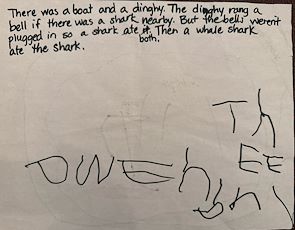 There was a boat and a dinghy. The dinghy rang a
bell if there was a shark nearby. But the bells weren't
plugged in so a shark ate it. Then a whale shark
both.
ate the shark.
Th
EE
OWEN